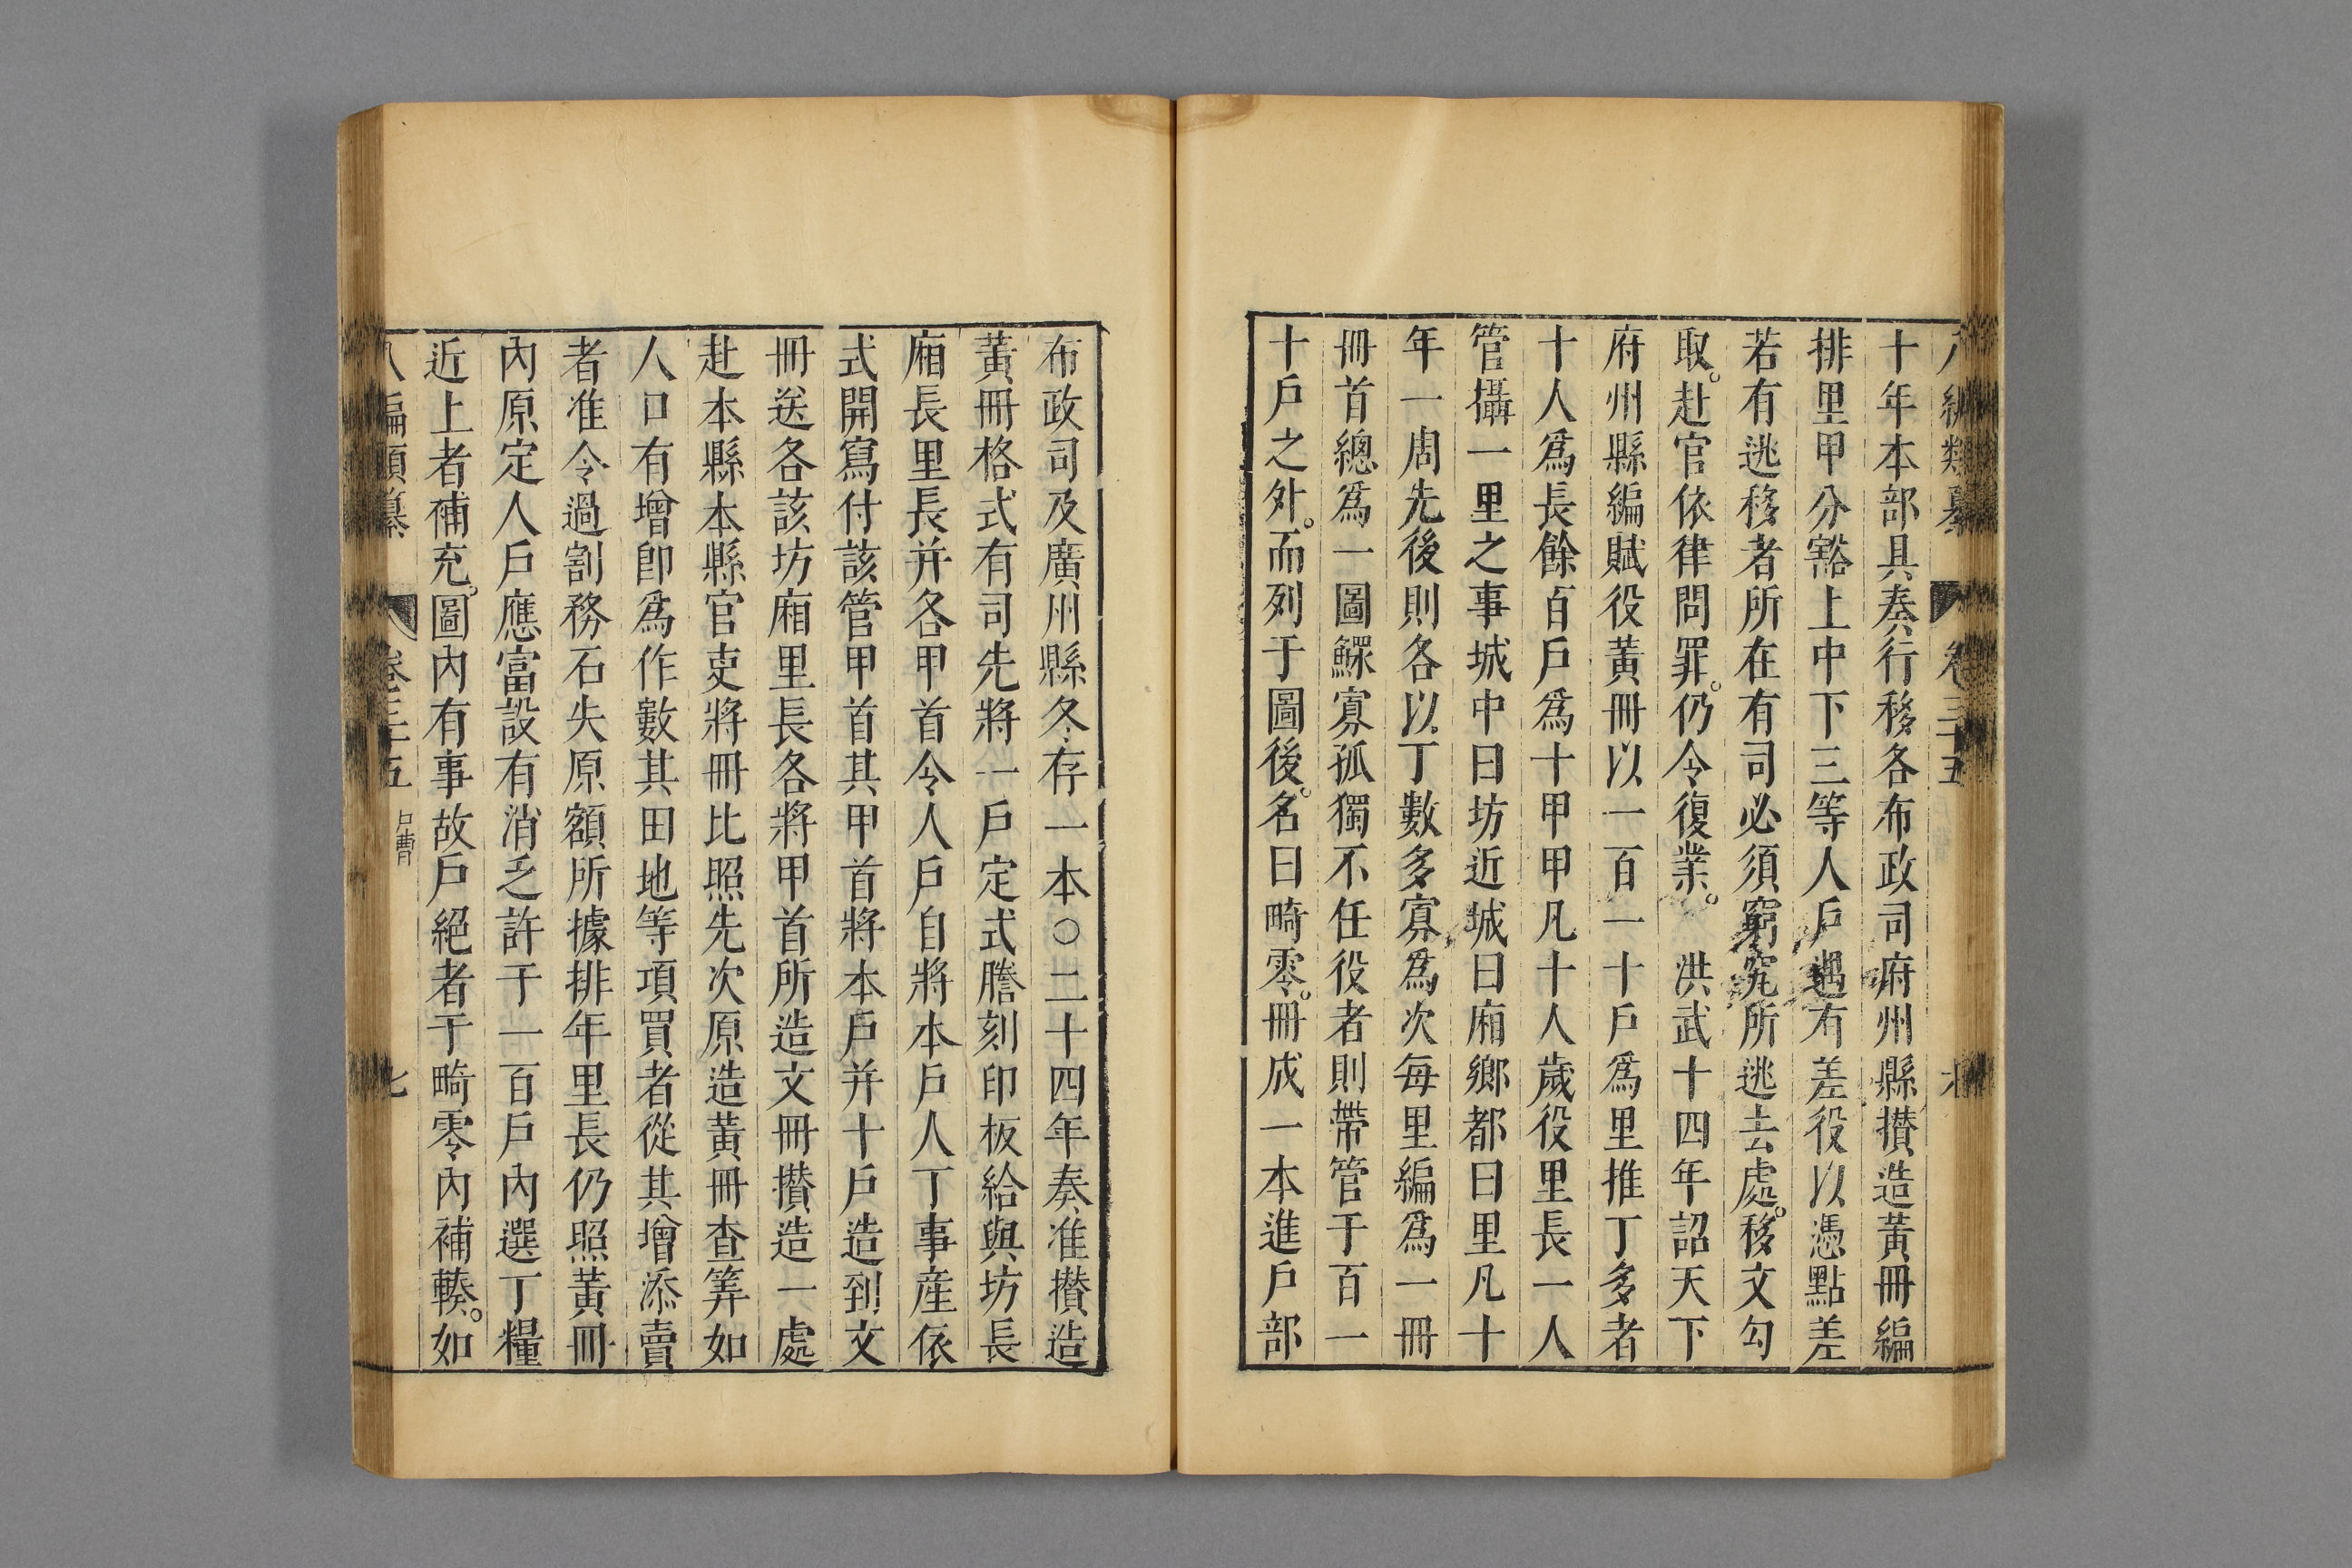 十年本部具奏行移各布政司府州縣攅造黃冊編
排里甲分豁上中下三等人戶遇有差役以憑點差
若有逃移者所在有司必須窮究所逃去處。移文勾
取。赴官依律問罪。仍令復業。　洪武十四年詔天下
府州縣編賦役黃冊以一百一十戶爲里推丁多者
十人爲長餘百戶爲十甲甲凡十人歲役里長一人
管攝一里之事城中曰坊近城曰廂鄉都曰里凡十
年一周先後則各以丁數多寡爲次每里編爲一冊
冊首總爲一圖鰥寡孤獨不任役者則帶管于百一
十戶之外。而列于圖後。名曰畸零。冊成一本進戶部
布政司及廣州縣冬存一本○二十四年奏准攅造
黃冊格式有司先將一戶定式謄刻印板給與坊長
廂長里長并各甲首令人戶自將本戶人丁事產依
式開寫付該管甲首其甲首將本戶并十戶造到文
冊送各該坊廂里長各將甲首所造文冊攅造一處
赴本縣本縣官吏將冊比照先次原造黃冊查筭如
人口有增卽爲作數其田地等項買者從其增添賣
者准令過割務石失原額所據排年里長仍照黃冊
內原定人戶應富設有消乏許于一百戶內選丁糧
近上者補充。圖內有事故戶絕者于畸零內補輳。如
八編類纂　卷三五　戶曹　七